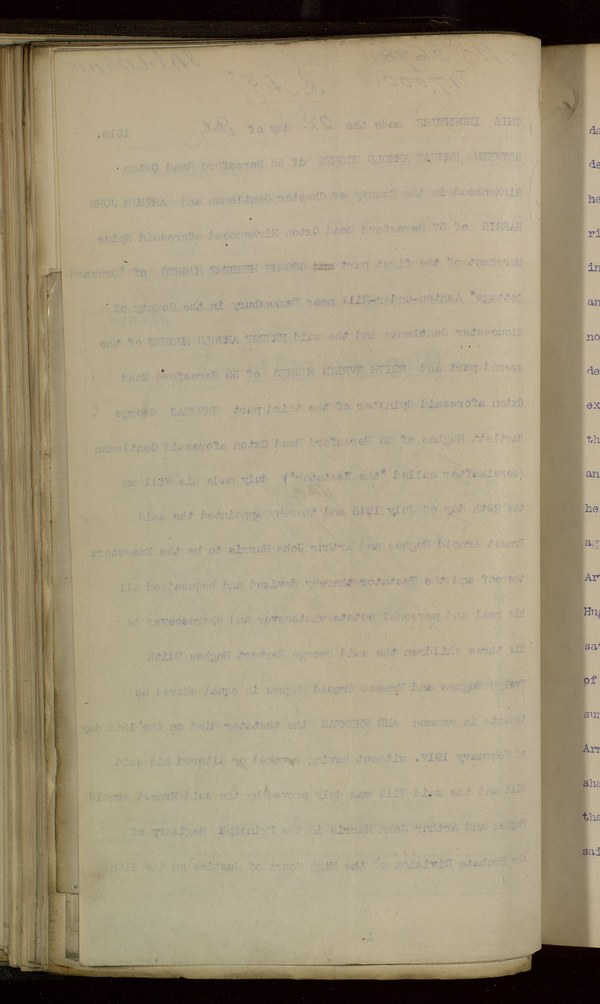 THIS INDENTURE made the 22 day of 1918.
BETWEEN ERNEST ARNOLD HUGHES of 35 Beresford Road Oxton
Birkenhead in the County of Chester Gentleman and ARTHUR JOHN
HARRIS of Beresford Road Oxton Birkenhead aforesaid Spice
Merchant of the first part and GEORGE HERBERT HUGHES of "Orchard
Cottage" Ashton-under-Hill near Tewkesbury in the County of
Gloucester Gentleman and the said ERNEST ARNOLD HUGHES of the
second part and EDITH HUGHES of 35 Beresford Road
Oxton aforesaid Spinster of the third part WHEREAS George
Bartlett Hughes of 35 Beresford Road Oxton aforesaid Gentleman
(hereinafter called "the Testator") duly made his Will on
the 29th day of July 1915 and thereby appointed the said
Ernest Arnold Hughes and Arthur John Harris to be the Executors
thereof and the Testator thereby devised and bequeathed all
his real and personal estate whatsoever and wheresoever to
his three children the said George Herbert Hughes Edith
Hughes and Ernest Arnold Hughes in equal shares as
tenants in common AND WHEREAS the testator died on the day
of February 1917. without having revoked or altered his said
Will and the said Will was duly proved by the said Ernest Arnold
Hughes and Arthur John Harris in the Principal Registry of
the Probate Division of the High Court of Justice on the
1.
da
de
he
ri
in
an
no
de
ex
th
an
he
ag
Ar
Hug
sat
of
sur
Arr
sha
tha
sai